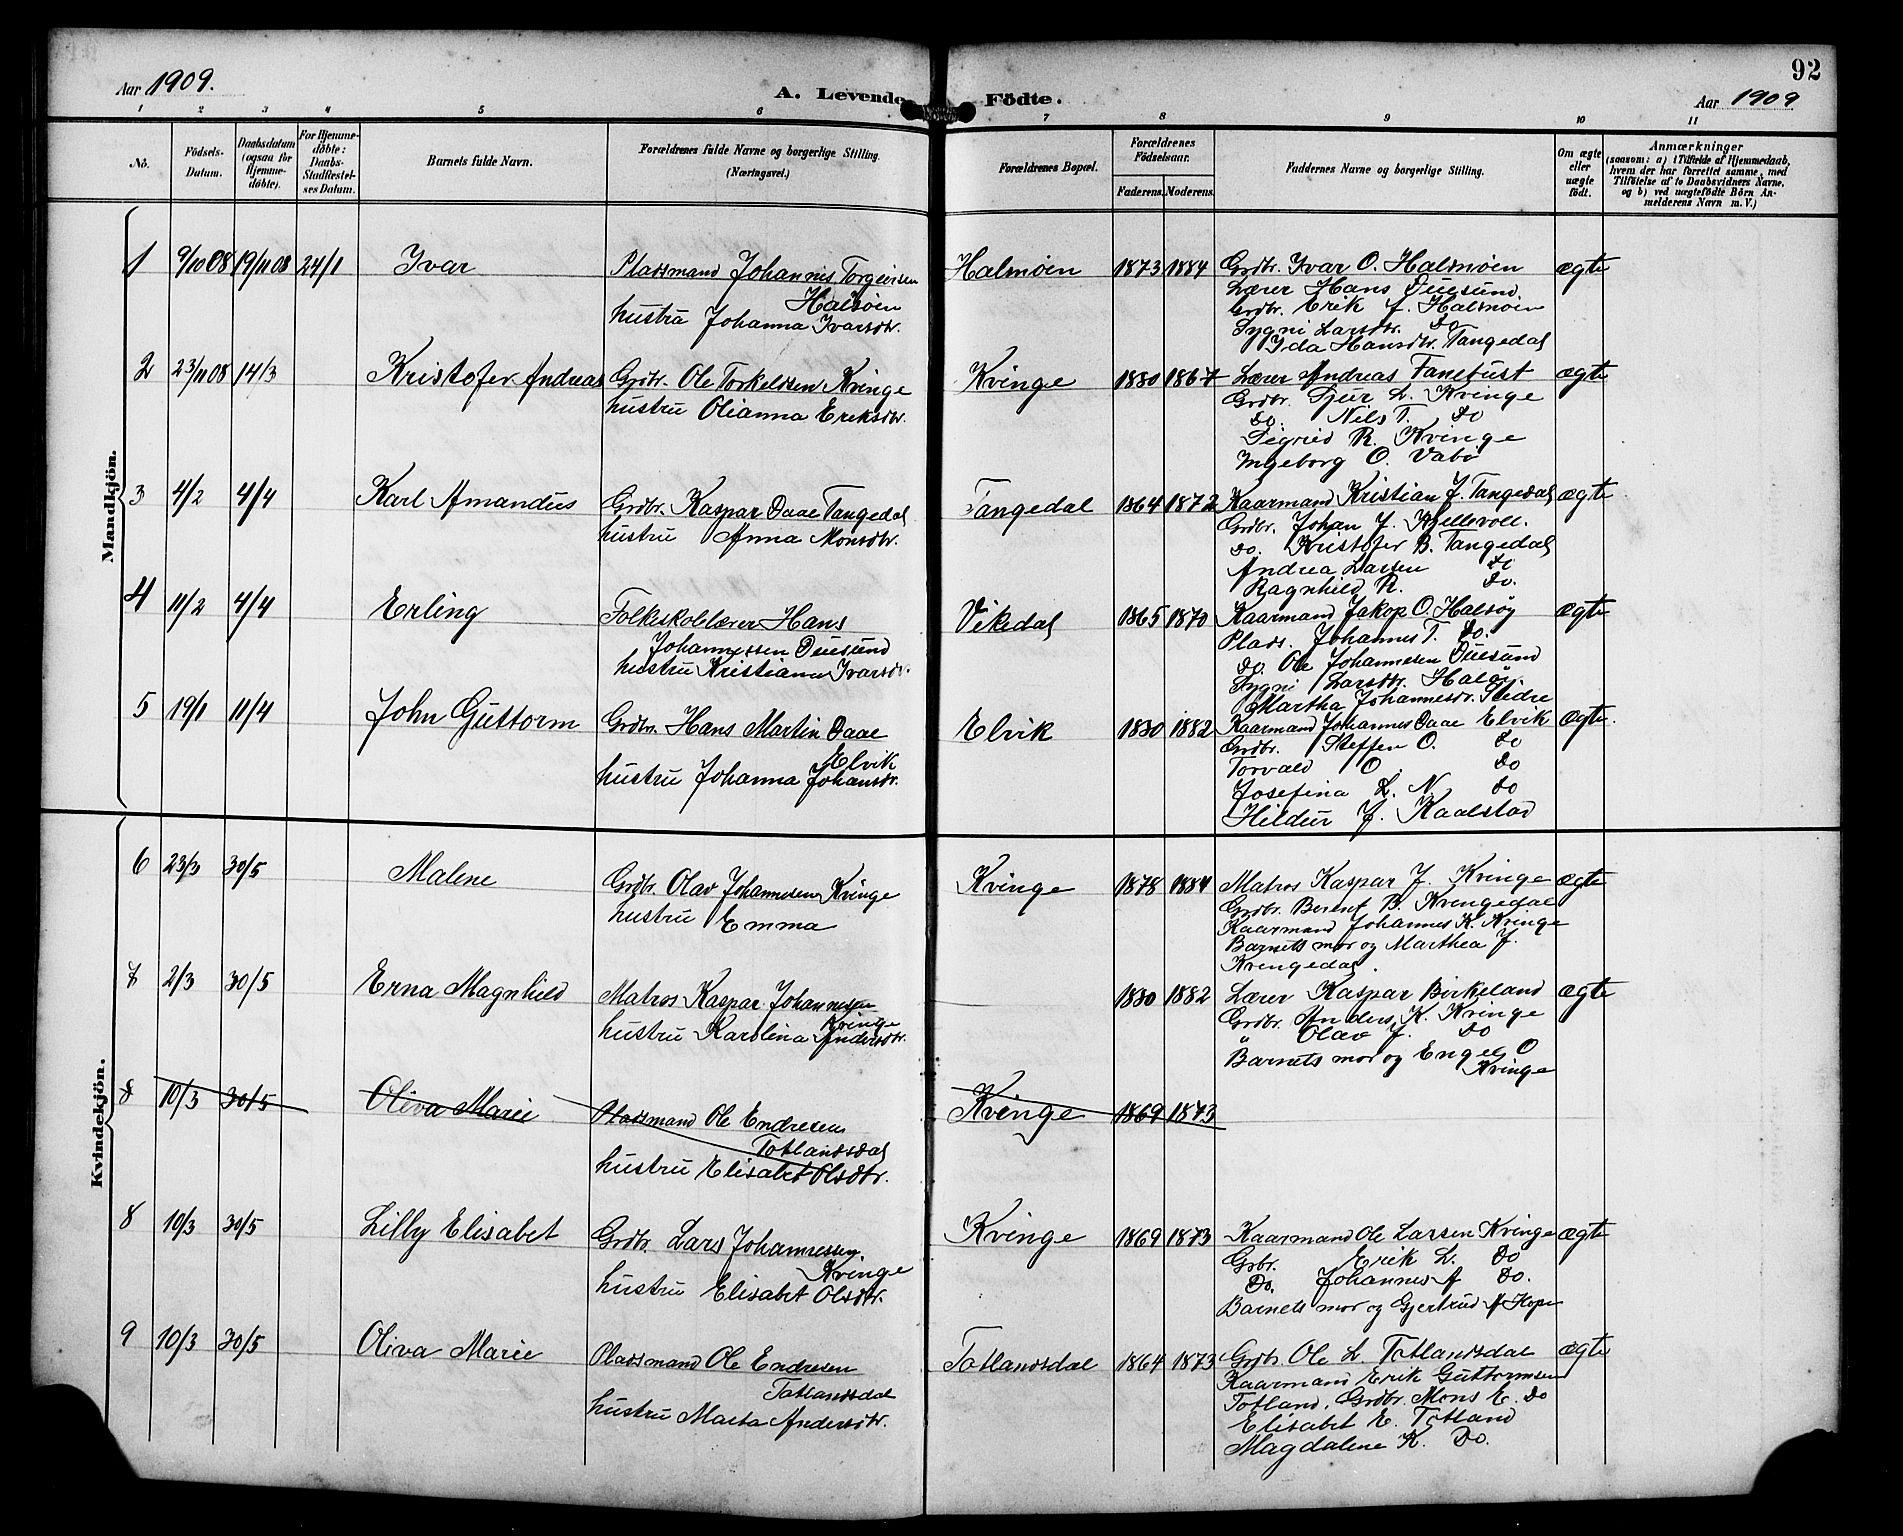 Aar 1909.
A. Levende Födte.
92
Aar 1909
1 2 3 4 5 6 7 8 9 10 11
No.
Födsels-Datum.
Daabsdatum (ogsaa for Hjemmedöbte).
For Hjemmedöbte: Daabs-Stadfæstelses Datum.
Barnets fulde Navn.
Forældrenes fulde Navne og borgerlige Stilling. (Næringsvei.)
Forældrenes Bopæl.
Forældrenes Födselsaar.
Faderens. Moderens.
Faddernes Navne og borgerlige Stilling.
Om ægte eller uægte födt.
Anmærkninger
(saasom: a) i Tilfælde af Hjemmedaab, hvem der har forrettet samme, med Tilföielse af to Daabsvidners Navne, og b) ved uægtefödte Börn Anmelderens Navn m. V.)
Mandkjön.
1 9/10 08 19/11 08 24/1 Ivar
Pladsmand Johannes Torgeirsen
Halsöen
hustru Johanna Ivarsdtr.
Halsnöen 1873 1884
Grdbr. Ivar O. Halsnöen
Lærer Hans Duesund
Grdbr. Erik J. Halsnöen
Sygni Larsdtr. Do
Ida Hansdtr. Tangedal
ægte
2 23/11 08 14/3 Kristofer Andreas
Grdbr. Ole Torkeldsen Kvinge
hustru Olianna Eriksdtr.
Kvinge 1880 1867
Lærer Andreas Fanebust
Grdbr. Sjur L. Kvinge
Do. Nils T. Do
Sigried R. Kvinge
Ingeborg O. Vabö
ægte
3 4/2 4/4 Karl Amandus
Grdbr. Kaspar Daae Tangedal
hustru Anna Monsdtr.
Tangedal 1864 1872
Kaarmand Kristian J. Tangedal
Grdbr. Johan J. Kjellevoll.
Do. Kristofer B. Tangedal
Andrea Larsen Do
Ragnhild R. Do.
ægte
4 11/2 4/4 Erling
Folkeskolelærer Hans
Johannessen Duesund
hustru Kristiana Ivarsdr.
Vikedal 1865 1870
Kaarmand Jakop O. Halsöy
Plads. Johannes T. Do.
Do. Ole Johannesen Duesund
Sygni Larsdtr. Halsöy
Martha Johannesdr. Slidre
ægte
5 19/1 11/4 John Guttorm
Grdbr. Hans Martin Daae
Elvik
hustru Johanna Johansdr.
Elvik 1880 1882
Kaarmand Johannes Daae Elvik
Grdbr. Steffen O. Do
Torvald O. Do
Josefina L. N. Do
Hildur J. Kaalstad
ægte.
Kvindekjön.
6 23/3 30/5 Malene
Grdbr. Olav Johannesen Kvinge
hustru Emma
Kvinge 1878 1884
Matros Kaspar J. Kvinge
Grdbr. Berent B. Kvingedal
Kaarmand Johannes K. Kvinge
Barnets mor og Marthea J.
Kvingedal.
ægte
7 2/3 30/5 Erna Magnhild
Matros Kaspar Johannesen
Kvinge
hustru Karolina Andersdtr.
1880 1882
Lærer Kaspar Birkeland
Grdbr. Anders K. Kvinge
" Olav J. Do
Barnets mor og Engel O
Kvinge
ægte
8 10/3 30/5 Oliva Marie
Pladsmand Ole Endresen
Totlandsdal
hustru Elisabet Olsdtr.
Kvinge 1869 1873
8 10/3 30/5 Lilly Elisabet
Grdbr. Lars Johannessen.
Kvinge
hustru Elisabet Olsdtr.
Kvinge 1869 1873
Kaarmand Ole Larsen Kvinge
Grbr. Erik L. Do
Do. Johannes A Do.
Barnets mor og Gjertrud A Hope
ægte
9 10/3 30/5 Oliva Marie
Pladsmand Ole Endresen
Totlandsdal
hustru Marta Andersdtr.
Totlandsdal 1864 1873
Grdbr. Ole L. Totlandsdal
Kaarmand Erik Guttormsen
Totland, Grdbr. Mons E. Do
Elisabet E. Totland
Magdalene K. Do.
ægte